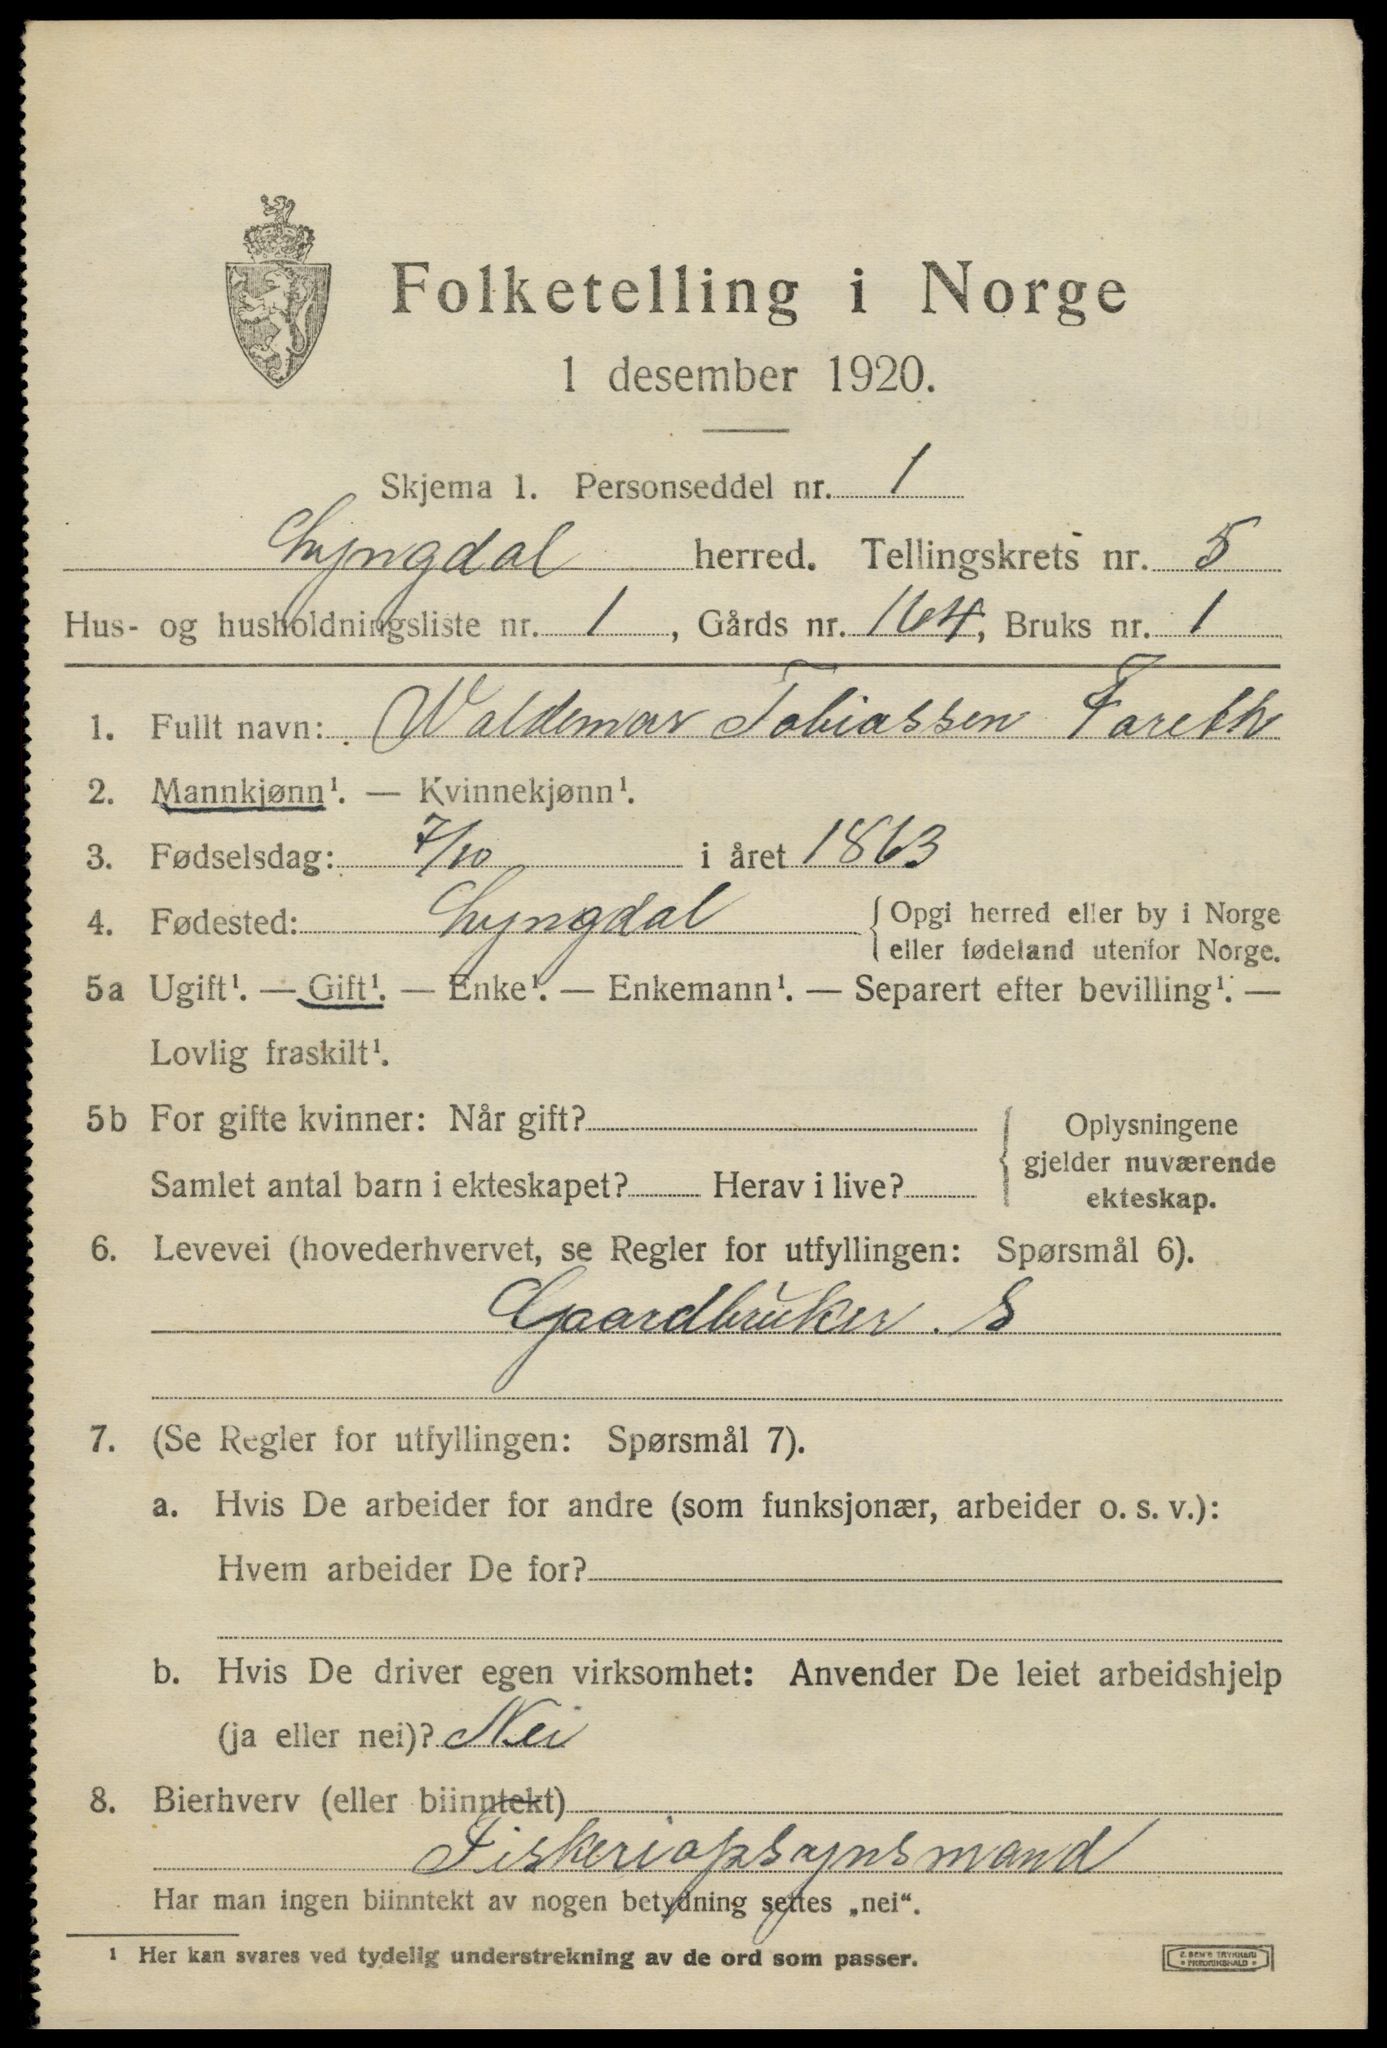 Folketelling i Norge
1 desember 1920.
Skjema 1. Personseddel nr. 1
Lyngdal herred. Tellingskrets nr. 5
Hus- og husholdningsliste nr. 1, Gårds nr. 164, Bruks nr. 1
1. Fullt navn: Waldemar Tobiassen Fareth
2. Mannkjønn¹. — Kvinnekjønn¹.
3. Fødselsdag: 7/10 i året 1863
4. Fødested: Lyngdal {Opgi herred eller by i Norge
eller fødeland utenfor Norge.
5a Ugift¹. — Gift¹. — Enke¹. — Enkemann¹. — Separert efter bevilling¹. —
Lovlig fraskilt¹.
5b For gifte kvinner: Når gift? { Oplysningene
gjelder nuværende
Samlet antal barn i ekteskapet? Herav i live?
ekteskap.
6. Levevei (hovederhvervet, se Regler for utfyllingen: Spørsmål 6).
Gaardbruker. S
7. (Se Regler for utfyllingen: Spørsmål 7).
a. Hvis De arbeider for andre (som funksjonær, arbeider o. s. v.):
Hvem arbeider De for?
b. Hvis De driver egen virksomhet: Anvender De leiet arbeidshjelp
(ja eller nei)? Nei
8. Bierhverv (eller biinntekt)
Fiskeriopsynsmand
Har man ingen biinntekt av nogen betydning settes „nei“.
¹ Her kan svares ved tydelig understrekning av de ord som passer.
E. SEM'S TRYKKERI
• FREDRIKSHALD •